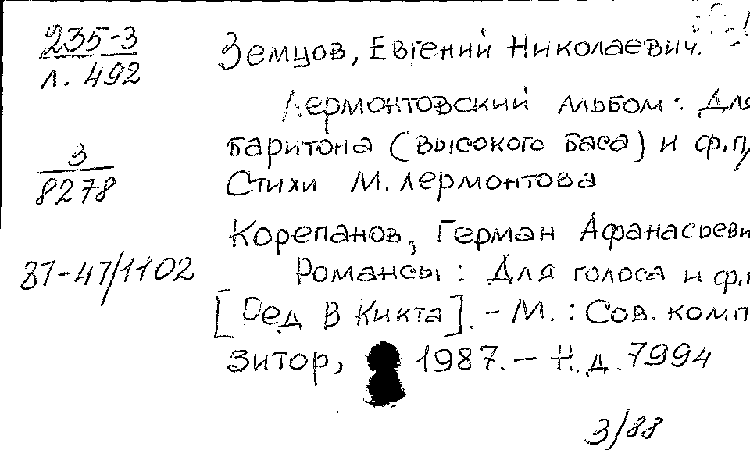 235-3
л. 492
Земцов, Евгений Николаевич.
Лермонтовский альбом: Для
баритона (высокого баса) и ф.п
3
8278
Стихи М. Лермонтова
Корепанов, Герман Афанасьеви
87-47/1102
Романсы: Для голоса и ф.п
[Ред В Кикта]. - М. : Сов. комп
зитор, 1987. - Н.д. 7994
3/88